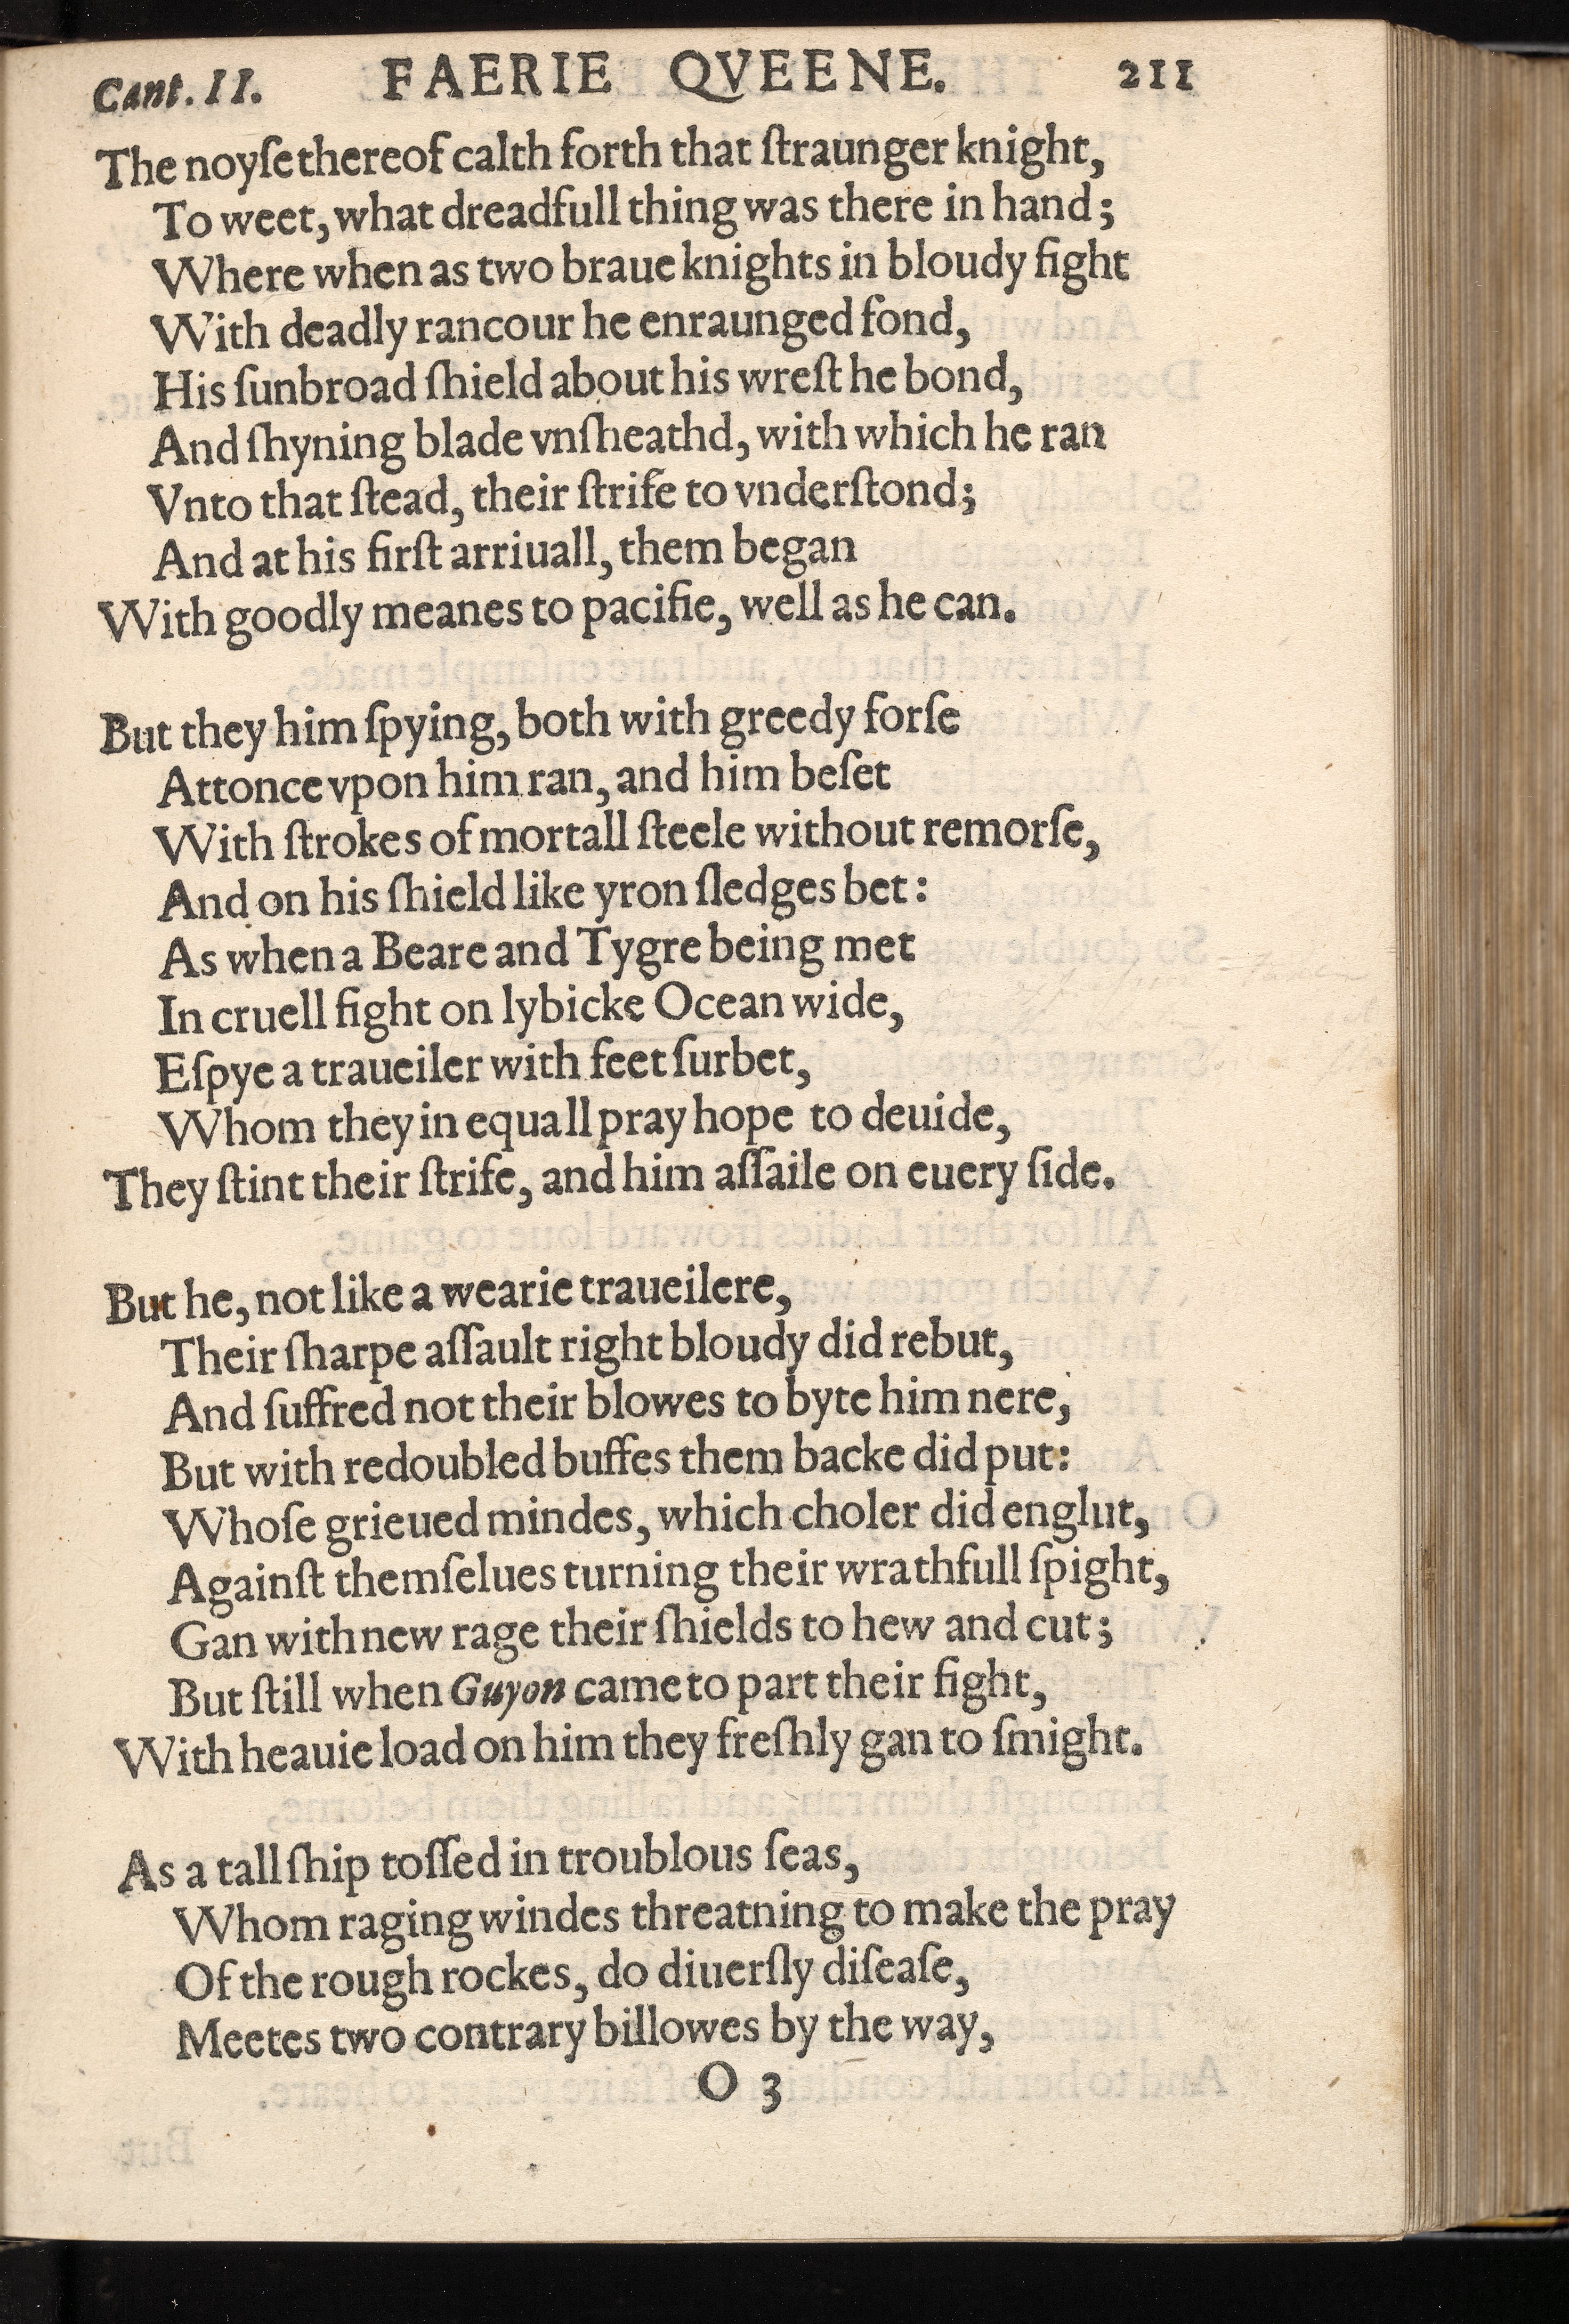 Cant. II. FAERIE QVEENE. 211
The noyſe thereof calth forth that ſtraunger knight,
To weet, what dreadfull thing was there in hand;
Where when as two braue knights in bloudy fight
With deadly rancour he enraunged fond,
His ſunbroad ſhield about his wreſt he bond,
And ſhyning blade vnſheathd, with which he ran
Vnto that ſtead, their ſtrife to vnderſtond;
And at his firſt arriuall, them began
With goodly meanes to pacifie, well as he can.
But they him ſpying, both with greedy forſe
Attonce vpon him ran, and him beſet
With ſtrokes of mortall ſteele without remorſe,
And on his ſhield like yron ſledges bet:
As when a Beare and Tygre being met
In cruell fight on lybicke Ocean wide,
Eſpye a traueiler with feet ſurbet,
Whom they in equall pray hope to deuide,
They ſtint their ſtrife, and him aſſaile on euery ſide.
But he, not like a wearie traueilere,
Their ſharpe aſſault right bloudy did rebut,
And ſuffred not their blowes to byte him nere,
But with redoubled buffes them backe did put:
Whoſe grieued mindes, which choler did englut,
Againſt themſelues turning their wrathfull ſpight,
Gan with new rage their ſhields to hew and cut;
But ſtill when Guyon came to part their fight,
With heauie load on him they freſhly gan to ſmight.
As a tall ſhip toſſed in troublous ſeas,
Whom raging windes threatning to make the pray
Of the rough rockes, do diuerſly diſeaſe,
Meetes two contrary billowes by the way,
O 3